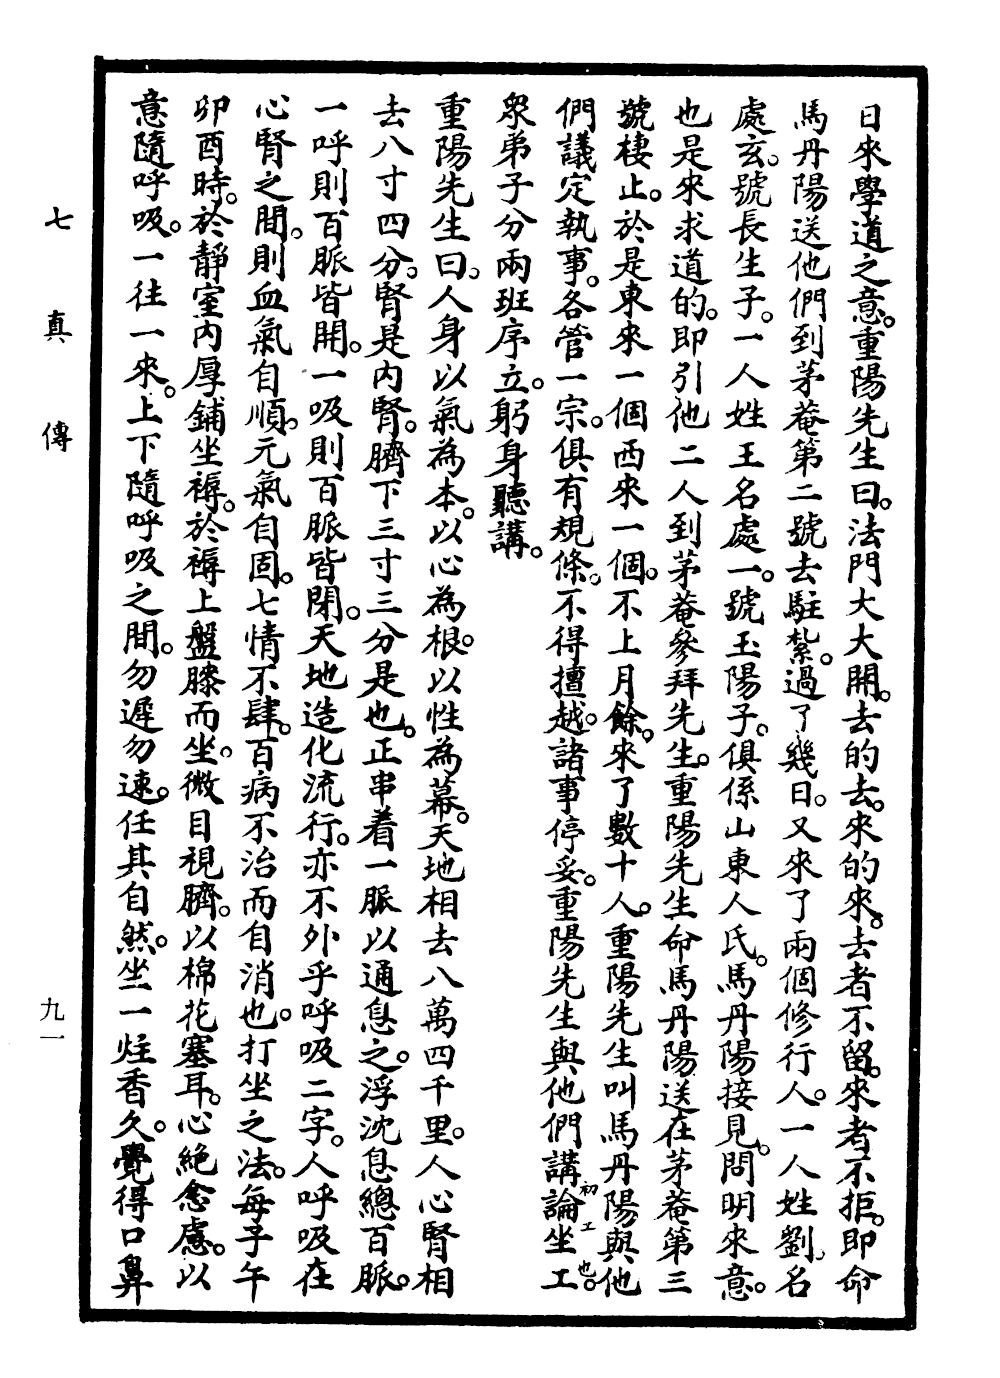 日來學道之意。重陽先生曰。法門大大開。去的去。來的來。去者不留。來者不拒。即命
馬丹陽送他們到茅菴第二號去駐紮。過了幾日。又來了兩個修行人。一人姓劉。名
處玄。號長生子。一人姓王名處一。號玉陽子。俱係山東人氏。馬丹陽接見。問明來意。
也是來求道的。即引他二人到茅菴參拜先生。重陽先生命馬丹陽送在茅菴第三
號棲止。於是東來一個西來一個。不上月餘。來了數十人。重陽先生叫馬丹陽與他
們議定執事。各管一宗。俱有規條。不得擅越。諸事停妥。重陽先生與他們講論坐工初工也。
衆弟子分兩班序立。躬身聽講。
重陽先生曰。人身以氣為本。以心為根。以性為幕。天地相去八萬四千里。人心腎相
去八寸四分。腎是內腎。臍下三寸三分是也。正串着一脈以通息之。浮沈息總百脈。
一呼則百脈皆開。一吸則百脈皆閉。天地造化流行。亦不外乎呼吸二字。人呼吸在
心腎之間。則血氣自順。元氣自固。七情不肆。百病不治而自消也。打坐之法。每子午
卯酉時。於靜室內厚鋪坐褥。於褥上盤膝而坐。微目視臍。以棉花塞耳。心絕念慮。以
意隨呼吸。一往一來。上下隨呼吸之間。勿遲勿速。任其自然。坐一炷香久。覺得口鼻
七真傳
九一